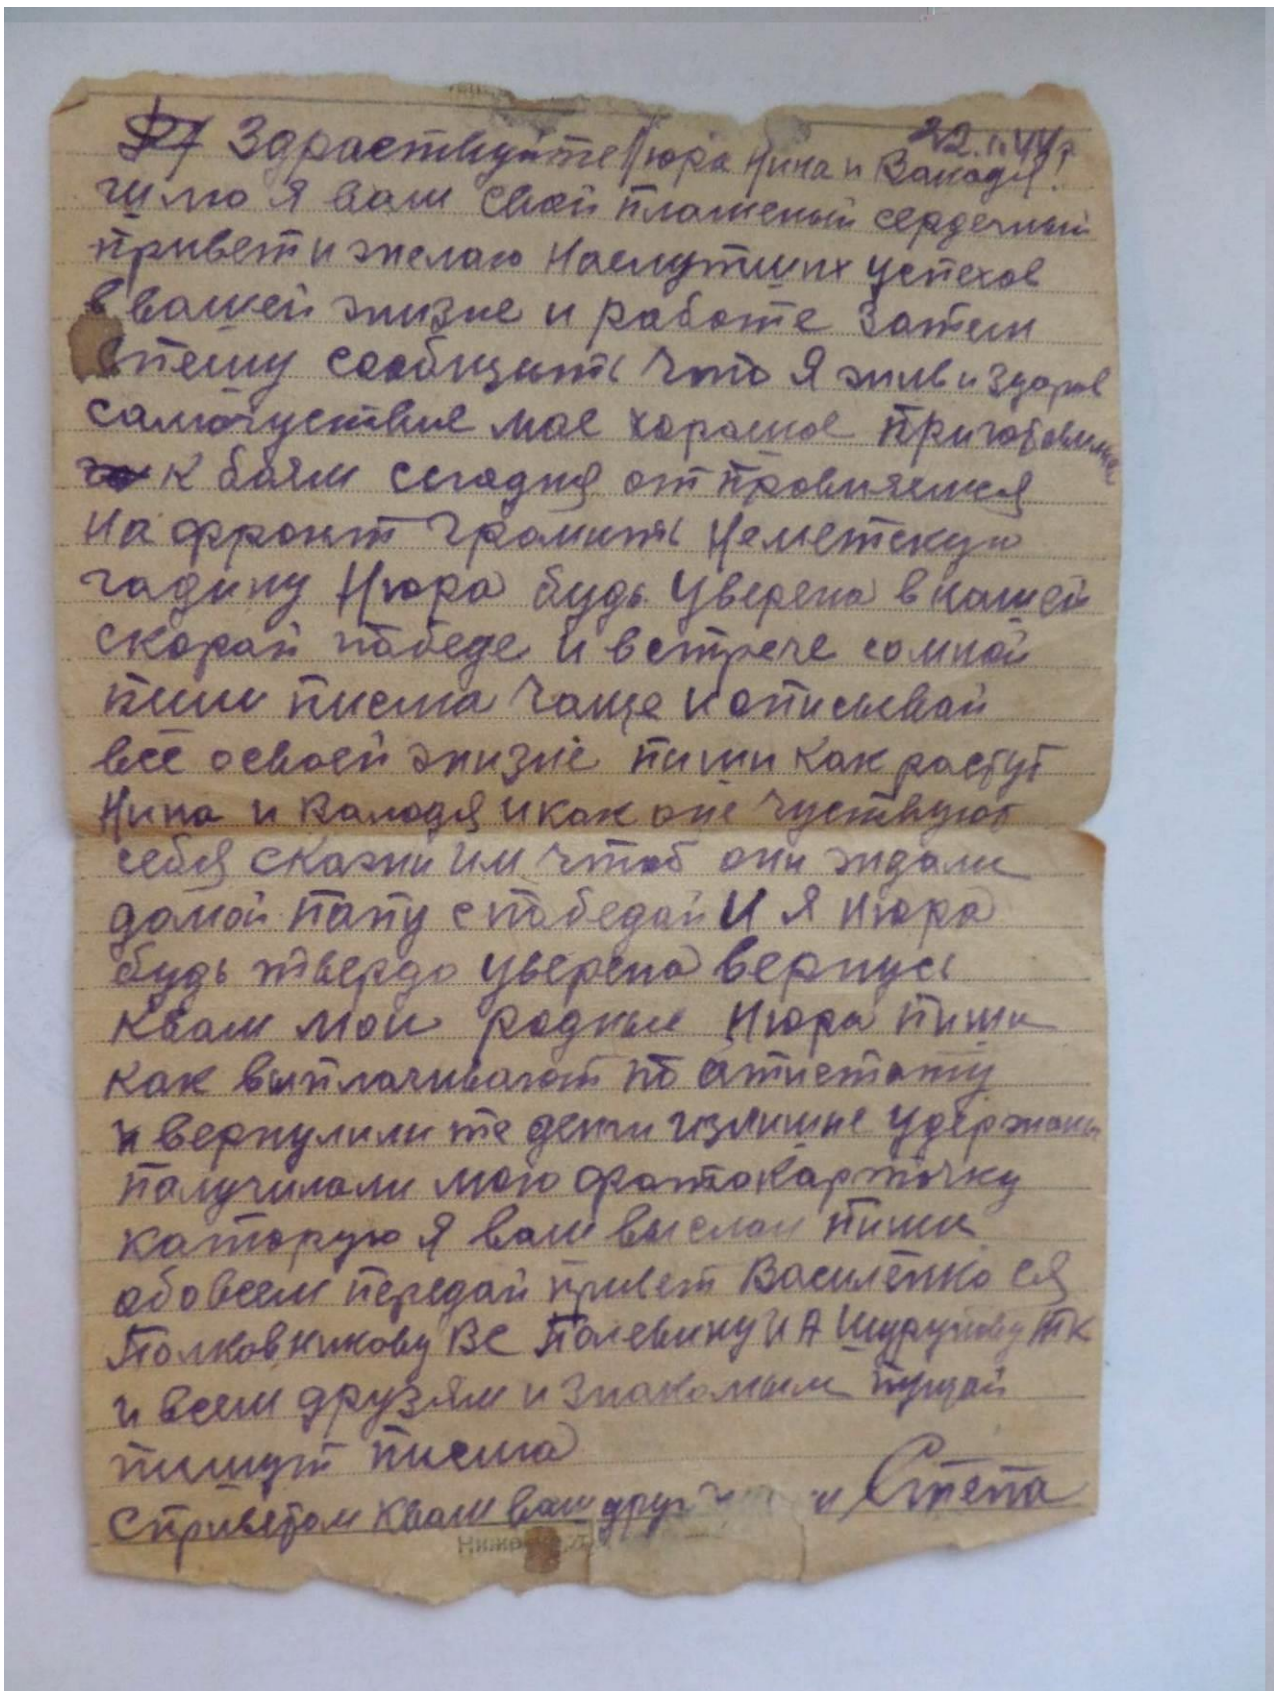 22.II.44г
Здраствуйте Нюра Нина и Валодя!
шлю я вам свой пламеный сердечный
привет и желаю наелутших успехов
в вашей жизне и работе Затем
спешу сообщить что я жив и здоров
самочуствие мое харошое приготовился
к боям сегодня отправляемся
на фронт громить Неметскую
гадину Нюра будь уверена в нашей
скорай победе и встрече сомной
пиши писма чаще и описывай
всё освоей жизне пиши как растут
Нина и Валодя и как оне чуствуют
себя скажи им чтоб они ждали
домой папу с победай И я Нюра
будь твердо уверена вернусь
квам мои родные Нюра пиши
как выплачивают по атистату
и вернулили те денги излишне удержаны
палучилали мою фотокарточку
каторую я вам выслал пиши
обовсем передай привет Василенко ся
Полковникову ВС Полевину И А Шурупову ТК
и всем друзям и знакомым пущай
пишут писма
с приветом квам ваш друг и Степа